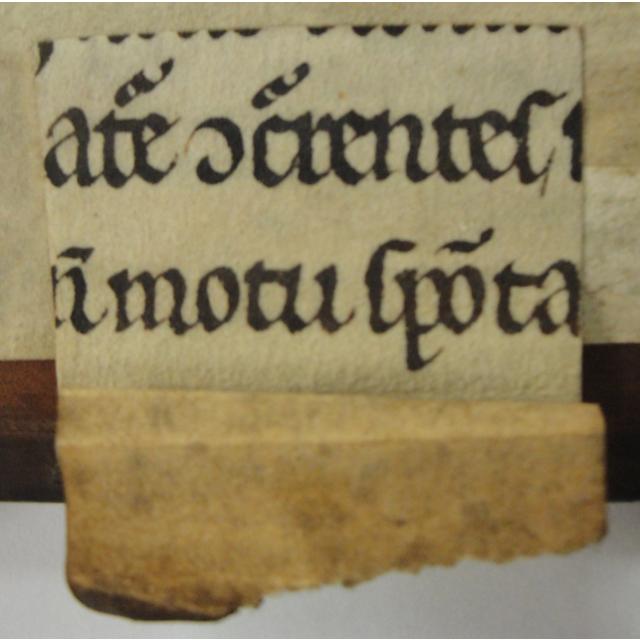 at᷑e ꝯc᷑rentes
n̄ motu spōta